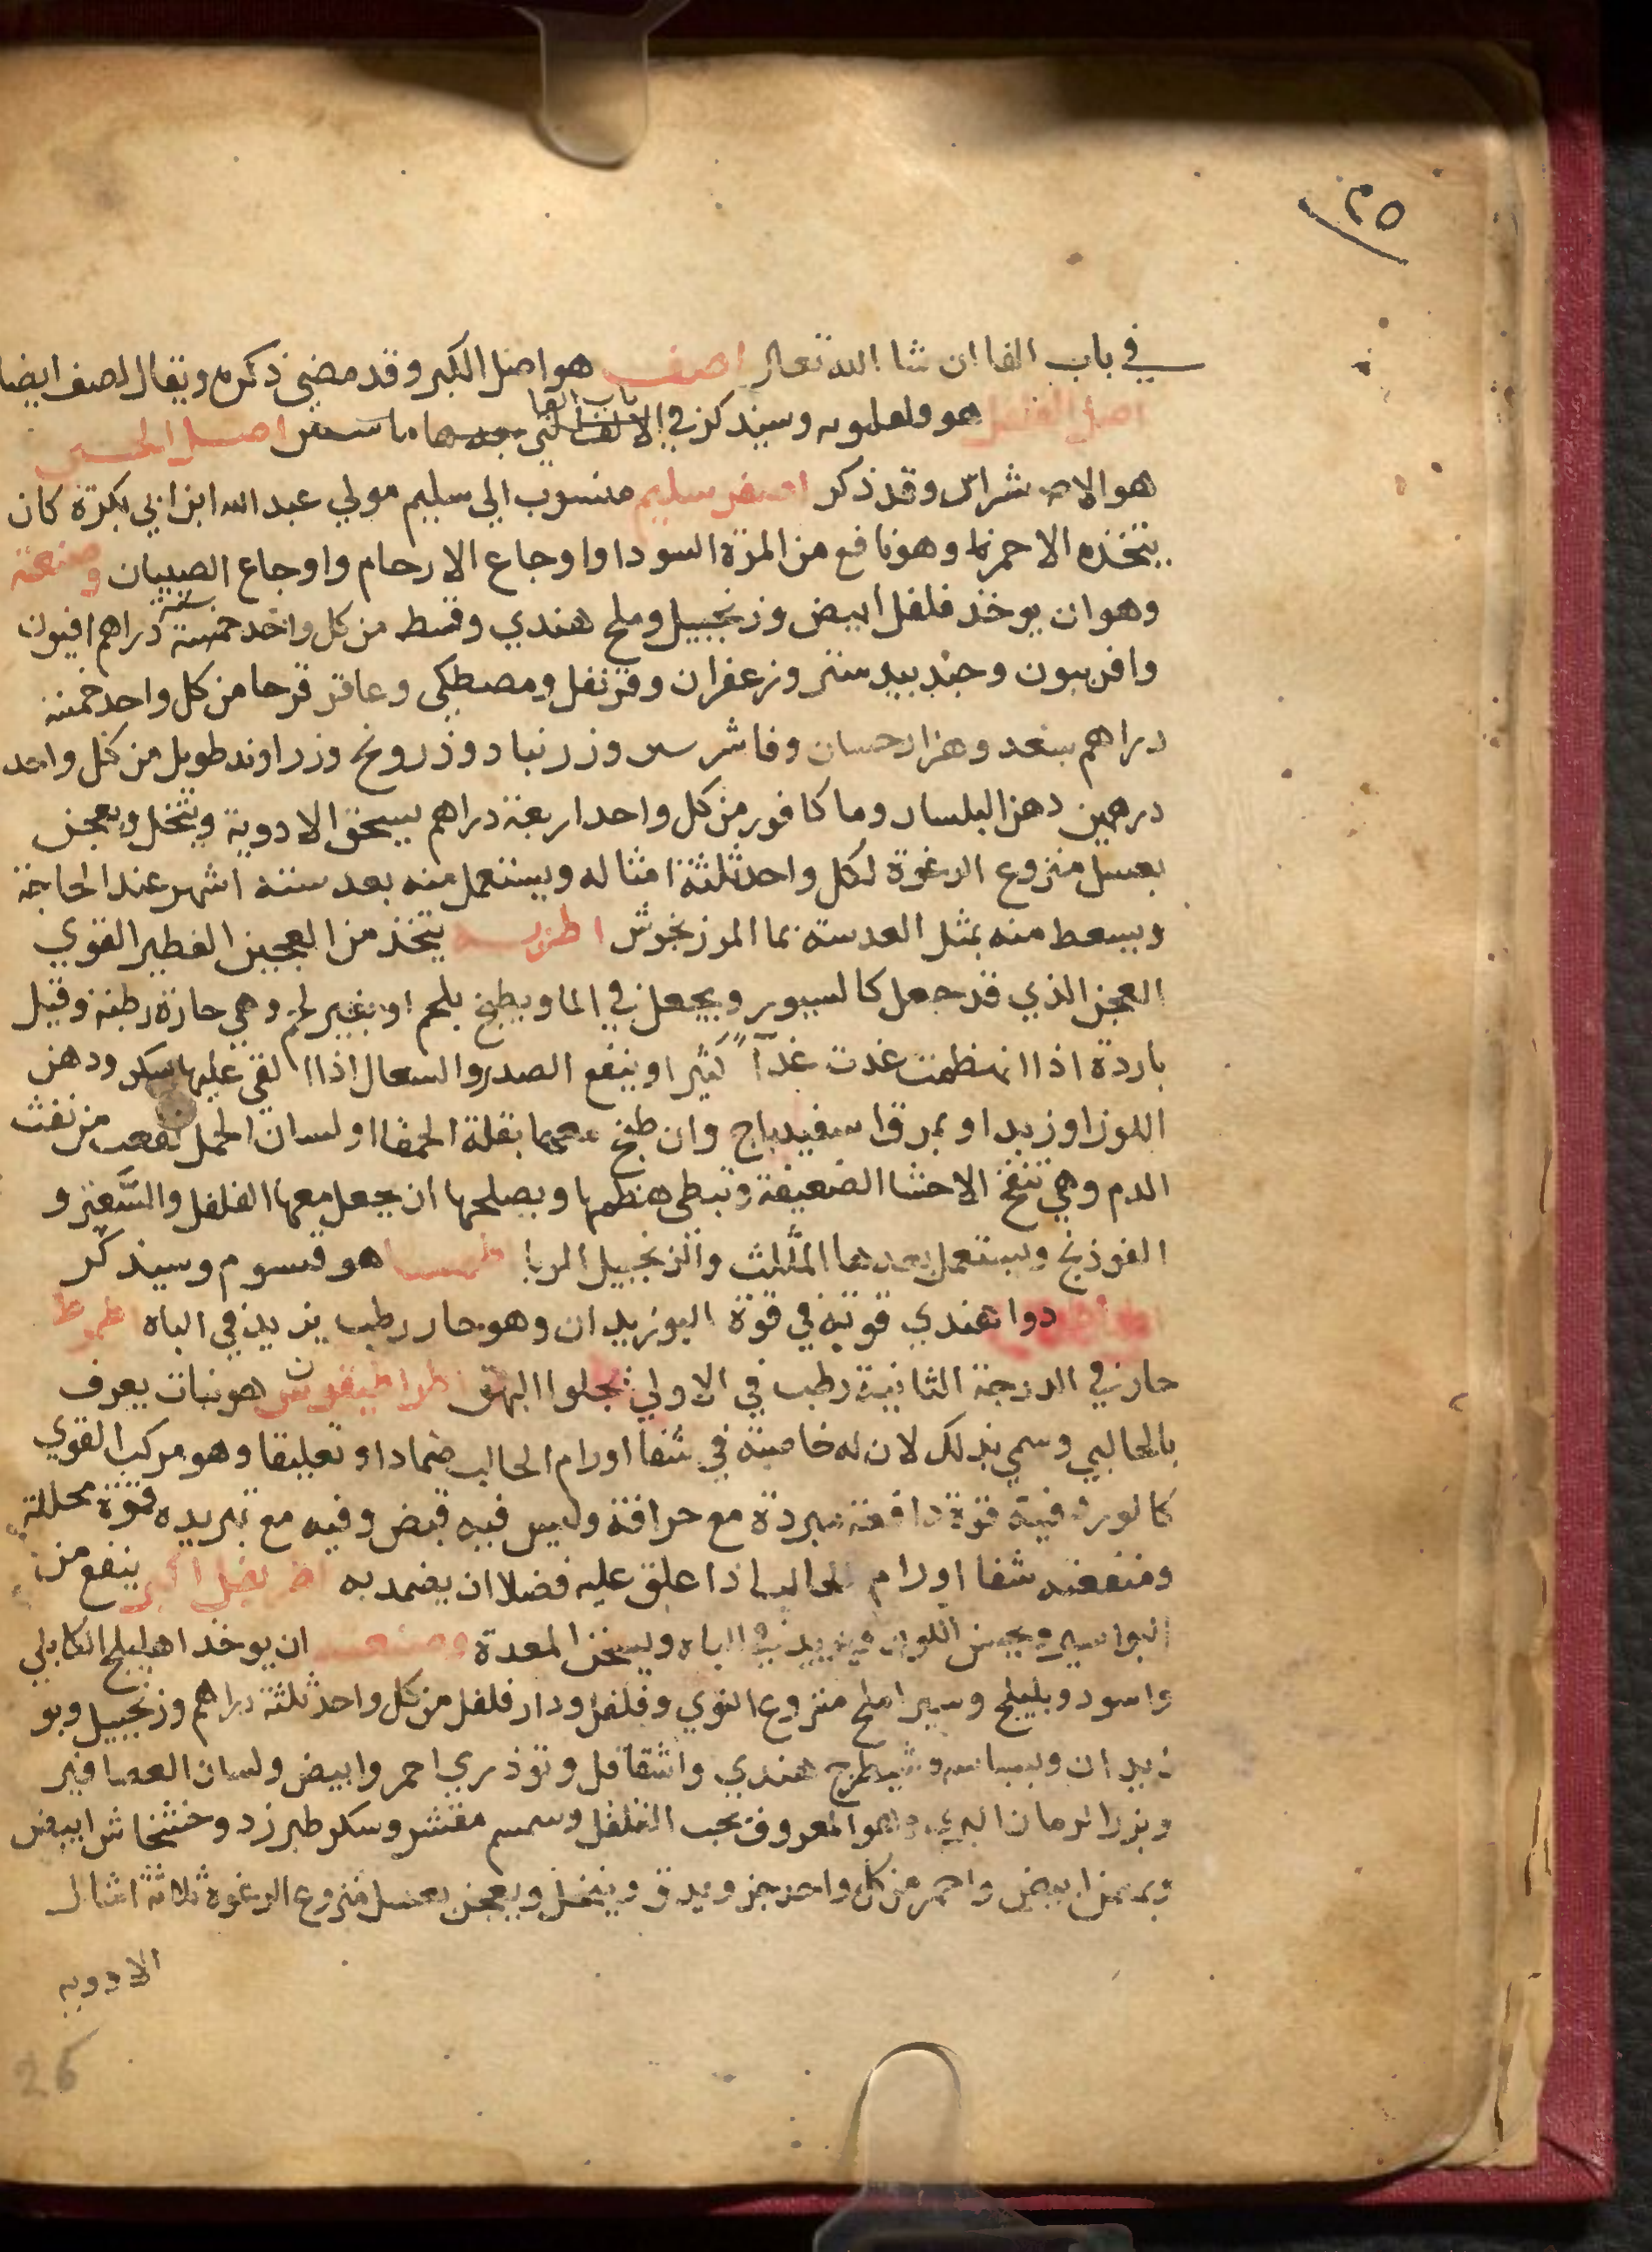 ٢٥
في باب الفا ان شا الله تعالى اصف هو اصل الكبر وقد مضي ذكره ويقال لصف ايضا
اصل الفلفل هو وسيذكر في باب الفا
هو الاشراس وقد ذكر اصفر سليم منسوب الي سليم مولي عبد الله ابن ابي بكرة كان
يتخذه وهو نافع من المرة السودا واوجاع الارحام واوجاع الصبيان وصنعته
وهو ان يوخذ فلفل ابيض وزنجبيل وملح هندي وقسط من كل واحد خمسة دراهم افيون
وافربيون وجندبيدستر وزعفران وقرنفل ومصطكي وعاقر قرحا من كل واحد خمسة
دراهم سعد وهزارحسان وفاشرسين وزرنباد وذرونج وزراوند طويل من كل واحد
درهمين دهن البلسان وما كافور من كل واحد اربعة دراهم يسحق الادوية وينخل ويعجن
بعسل منزوع الرغوة لكل واحد ثلثة امثاله ويستعمل منه بعد ستة اشهر عند الحاجة
ويسعط منه بمثل العدسة بما المرزنجوش اطريه يتخذ من العجين الفطير القوي
العجن الذي قد جعل كالسيور ويجعل في الما ويطبخ بلحم او بغير لحم وهي حارة رطبة وقيل
باردة اذا انهظمت غدت غدآ كثيرا وينفع الصدر والسعال اذا القي عليها سكر ودهن
اللوز او زبد او بمرقا سفيدباج وان طبخ معها بقلة الحمقا او لسان الحمل نفعت من نفث
الدم وهي تنفخ الاحشا الضعيفة وتبطي هظمها ويصلحها ان يجعل معها الفلفل والسعتر و
الفوذنج ويستعمل بعدها المثلث والزنجبيل المربا هو قسوم وسيذكر
دوا هندي قوته في قوة البوزيدان وهو حار رطب يزيد في الباه اطموط
حار في الدرجة الثانية رطب في الاولي يجلوا البهق اطراطيقون هو نبات يعرف
بالحالبي وسمي بذلك لان له خاصية في شفا اورام الحالب ضمادا وتعليقا وهو مركب القوي
كالورد فيه قوة دافعة مبردة مع حرافة وليس فيه قبض وفيه مع تبريده قوة محللة
ومنفعته شفا اورام الحالب اذا علق عليه فضلا ان يضمد به اطريفل اكبر ينفع من
البواسير ويحسن اللون ويزيد في الباه ويسخن المعدة وصنعته ان يوخذ اهليلج الكابلي
واسود وبليلج وسير املج منزوع النوي وفلفل ودار فلفل من كل واحد ثلثة دراهم وزنجبيل وبو
زيدان وبسباسه وشيطرج هندي واشقاقل وتوذري احمر وابيض ولسان العصافير
وبزر الرمان البري وهو المعروف بحب الفلفل وسمسم مقشر وسكر طبرزد وخشخاش ابيض
وبهمن ابيض واحمر من كل واحد جز ويدق وينخل ويعجن بعسل منزوع الرغوة ثلاثة امثال
الادويه
26